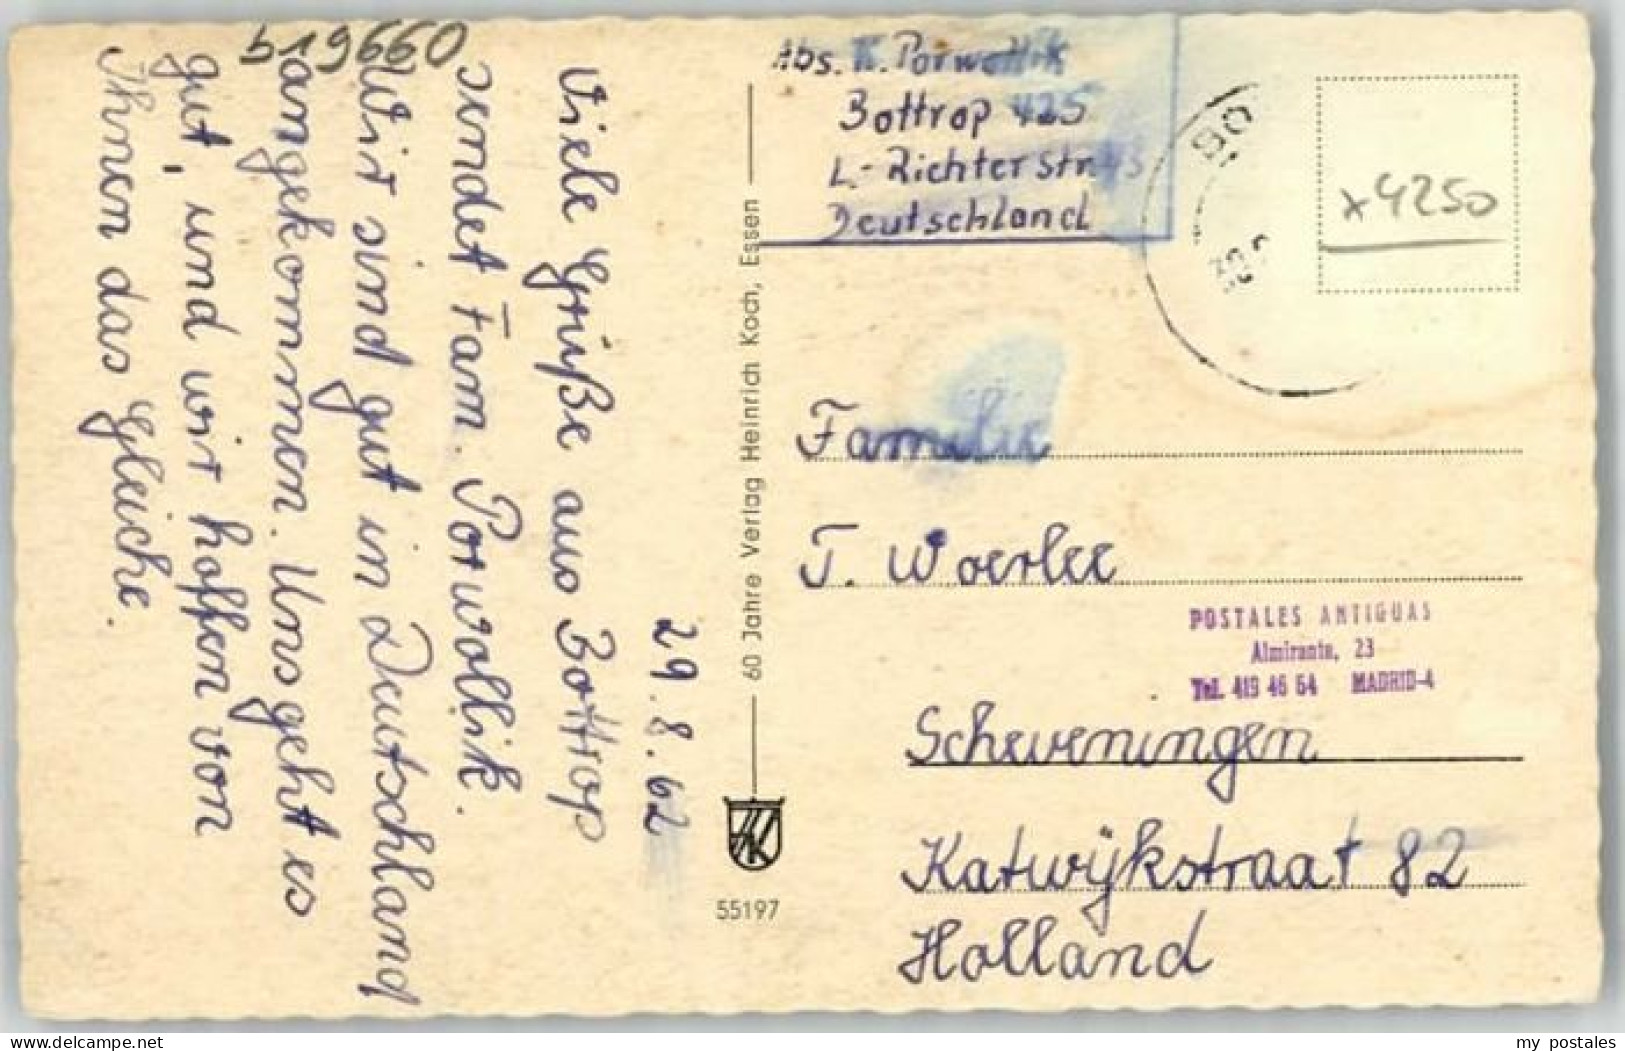 b19660
29.8.62
Viele Grüße aus Bottrop
sendet Fam. Porwollik.
Wir sind gut in Deutschland
angekommen. Uns geht es
gut, und wir hoffen von
Ihnen das Gleiche.
60 Jahre Verlag Heinrich Koch, Essen
HK
55197
Abs. K. Porwollik
Bottrop 425
L.-Richterstr.
Deutschland
BO
x4250
Familie
T. Woerlee
POSTALES ANTIGUAS
Almirante, 23
Tel. 419 46 64 MADRID-4
Scheveningen
Katwijkstraat 82
Holland
delcampe.net
my_postales